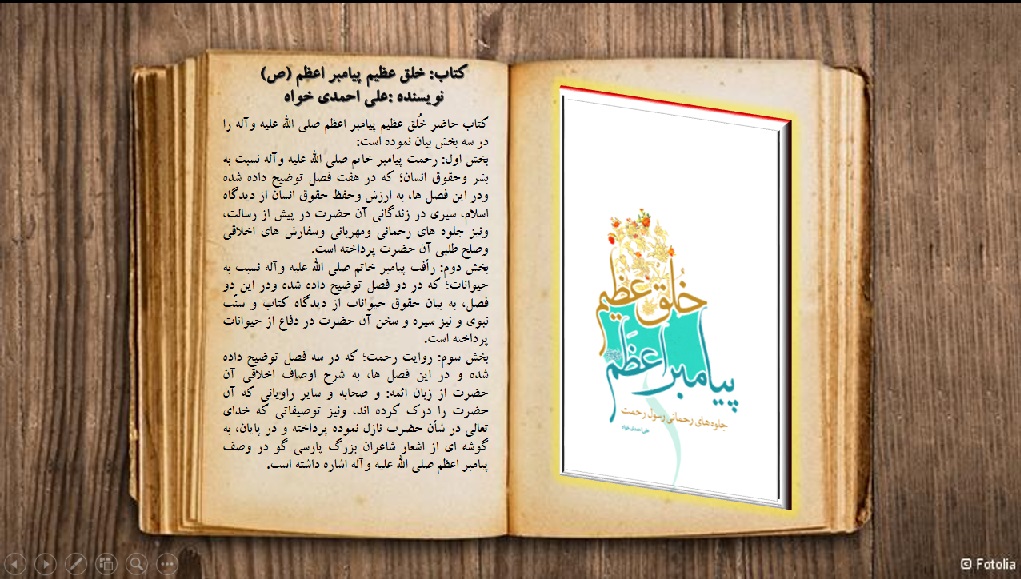 کتاب: خلق عظیم پیامبر اعظم (ص)
نویسنده :علی احمدی خواه
کتاب حاضر خُلق عظیم پیامبر اعظم صلی الله علیه وآله را
در سه بخش بیان نموده است:
بخش اول: رحمت پیامبر خاتم صلی الله علیه وآله نسبت به
بشر وحقوق انسان؛ که در هفت فصل توضیح داده شده
ودر این فصل ها، به ارزش وحفظ حقوق انسان از دیدگاه
اسلام، سیری در زندگانی آن حضرت در پیش از رسالت،
ونیز جلوه های رحمانی ومهربانی وسفارش های اخلاقی
وصلح طلبی آن حضرت پرداخته است.
بخش دوم: رأفت پیامبر خاتم صلی الله علیه وآله نسبت به
حیوانات؛ که در دو فصل توضیح داده شده ودر این دو
فصل، به بیان حقوق حیوانات از دیدگاه کتاب و سنّت
نبوی و نیز سیره و سخن آن حضرت در دفاع از حیوانات
پرداخته است.
بخش سوم: روایت رحمت؛ که در سه فصل توضیح داده
شده و در این فصل ها، به شرح اوصاف اخلاقی آن
حضرت از زبان ائمه: و صحابه و سایر راویانی که آن
حضرت را درک کرده اند، ونیز توصیفاتی که خدای
تعالی در شأن حضرت نازل نموده پرداخته و در پایان، به
گوشه ای از اشعار شاعران بزرگ پارسی گو در وصف
پیامبر اعظم صلی الله علیه وآله اشاره داشته است.
خُلق عظیم
پیامبر اعظم
جلوه‌های رحمانی رسول رحمت
علی احمدی خواه
© Fotolia